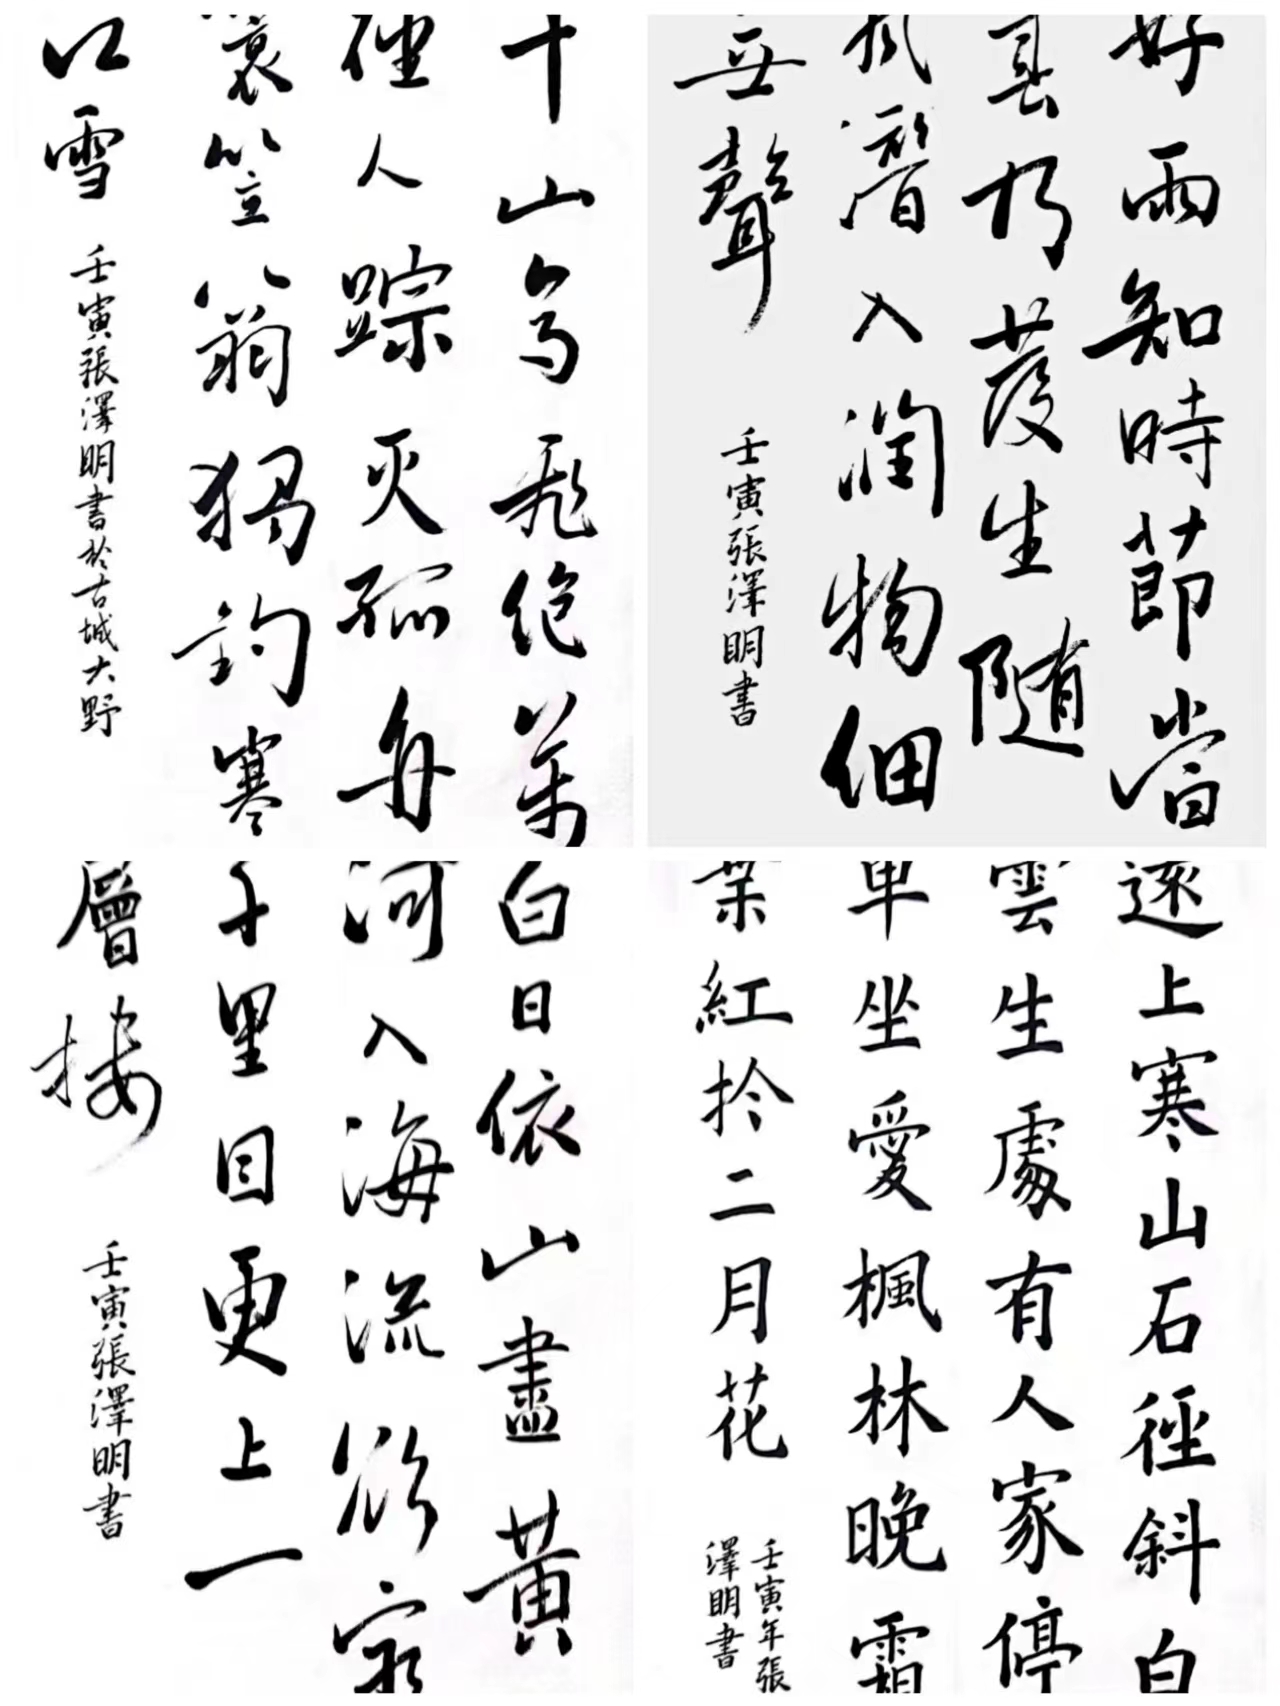 千山鸟飞绝萬
径人踪灭孤舟
蓑笠翁獨钓寒
江雪
壬寅張澤明書於古城大野
好雨知時節當
春乃發生随
風潛入润物细
無聲
壬寅張澤明書
白日依山盡黄
河入海流欲窮
千里目更上一
層楼
壬寅張澤明書
遠上寒山石徑斜白
雲生處有人家停
車坐愛楓林晚霜
葉紅於二月花
壬寅年張
澤明書